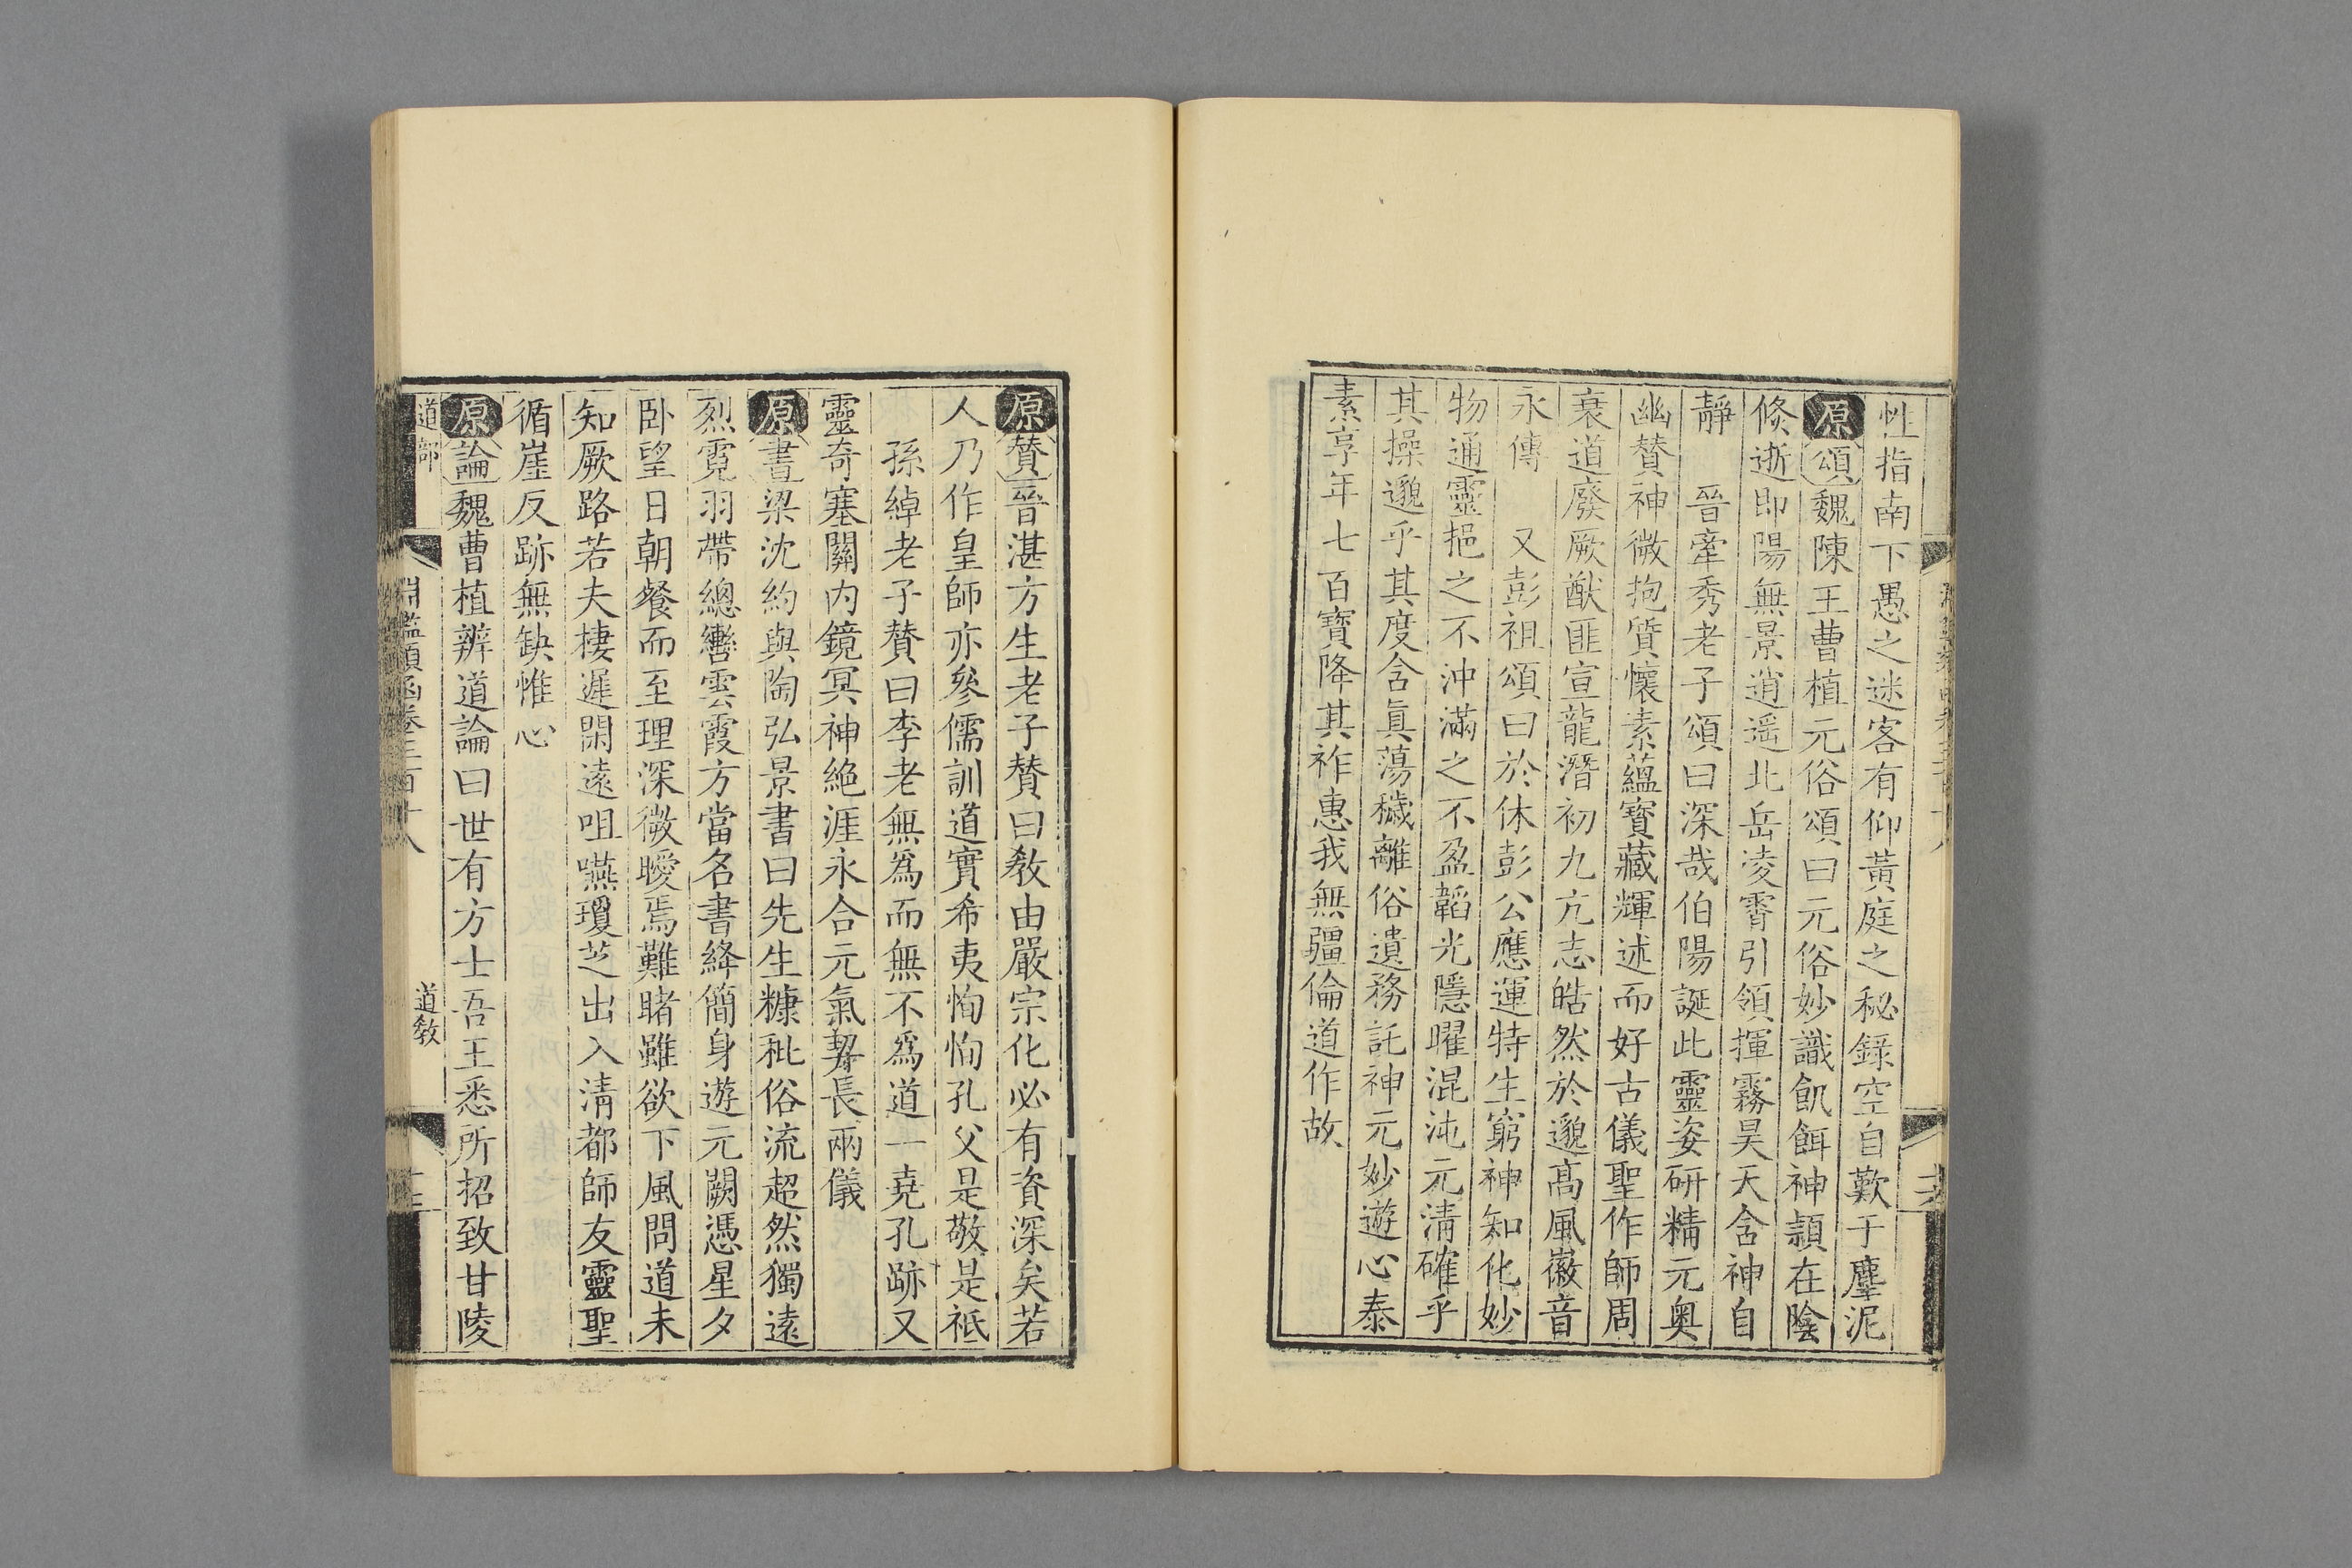 性指南下愚之迷客有仰黃庭之秘錄空自歎于塵泥
原頌魏陳王曹植元俗頌曰元俗妙識飢餌神頴在陰
倐逝即陽無景逍遥北岳凌霄引領揮霧昊天含神自
靜　晉牽秀老子頌曰深哉伯陽誕此靈姿研精元奥
幽贊神微抱質懷素蘊寳藏輝述而好古儀聖作師周
衰道廢厥猷匪宣龍潛初九亢志皓然於邈髙風徽音
永傳　又彭祖頌曰於休彭公應運特生窮神知化妙
物通靈挹之不沖滿之不盈韜光隱曜混沌元淸確乎
其操邈乎其度含眞蕩穢離俗遺務託神元妙遊心泰
素享年七百寶降其祚惠我無疆倫道作故
原贊晉湛方生老子贊曰敎由嚴宗化必有資深矣若
人乃作皇師亦參儒訓道實希夷恂恂孔父是敬是祇
孫綽老子贊曰李老無爲而無不爲道一堯孔跡又
靈奇塞關内鏡冥神絶涯永合元氣契長兩儀
原書梁沈約與陶弘景書曰先生糠秕俗流超然獨遠
烈霓羽帶總轡雲霞方當名書絳簡身遊元闕憑星夕
卧望日朝餐而至理深微曖焉難睹雖欲下風問道未
知厥路若夫棲遲閑遠咀嚥瓊芝出入淸都師友靈聖
循崖反跡無缺惟心
原論魏曹植辨道論曰世有方士吾王悉所招致甘陵
道部　淵鑑類函卷三百十八　道敎